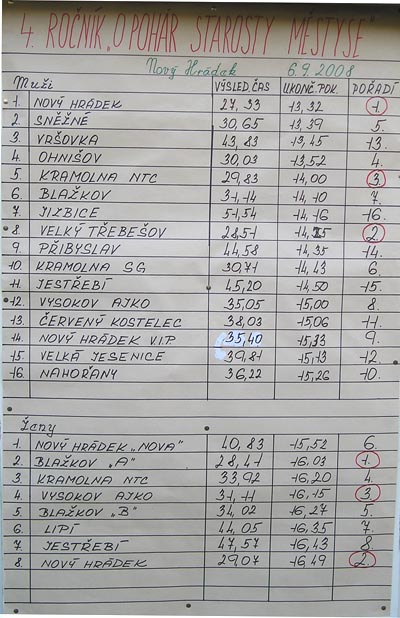 4. ROČNÍK „O POHÁR STAROSTY MĚSTYSE"
Nový Hrádek 6.9.2008
Muži VÝSLED. ČAS UKONČ. POK. POŘADÍ
1. NOVÝ HRÁDEK 27,33 13,32 1.
2 SNĚŽNÉ 30,65 13,39 5.
3. VRŠOVKA 43,83 13,45 13.
4. OHNIŠOV 30,03 13,52 4.
5. KRAMOLNA NTC 29,83 14,00 3.
6. BLAŽKOV 31,14 14,10 7.
7. JIZBICE 51,54 14,16 16.
8. VELKÝ TŘEBEŠOV 28,51 14,25 2.
9. PŘIBYSLAV 44,58 14,35 14.
10. KRAMOLNA SG 30,71 14,43 6.
11. JESTŘEBÍ 45,20 14,50 15.
12. VYSOKOV AJKO 35,05 15,00 8.
13. ČERVENÝ KOSTELEC 38,03 15,06 11.
14. NOVÝ HRÁDEK V.I.P. 35,40 15,33 9.
15. VELKÁ JESENICE 39,81 15,13 12.
16. NAHOŘANY 36,22 15,26 10.
Ženy
1. NOVÝ HRÁDEK „NOVA" 40,83 15,52 6.
2. BLAŽKOV „A" 28,41 16,03 1.
3. KRAMOLNA NTC 33,92 16,20 4.
4. VYSOKOV AJKO 31,11 16,15 3.
5. BLAŽKOV „B" 34,02 16,27 5.
6. LIPÍ 44,05 16,35 7.
7. JESTŘEBÍ 47,57 16,43 8.
8. NOVÝ HRÁDEK 29,07 16,49 2.